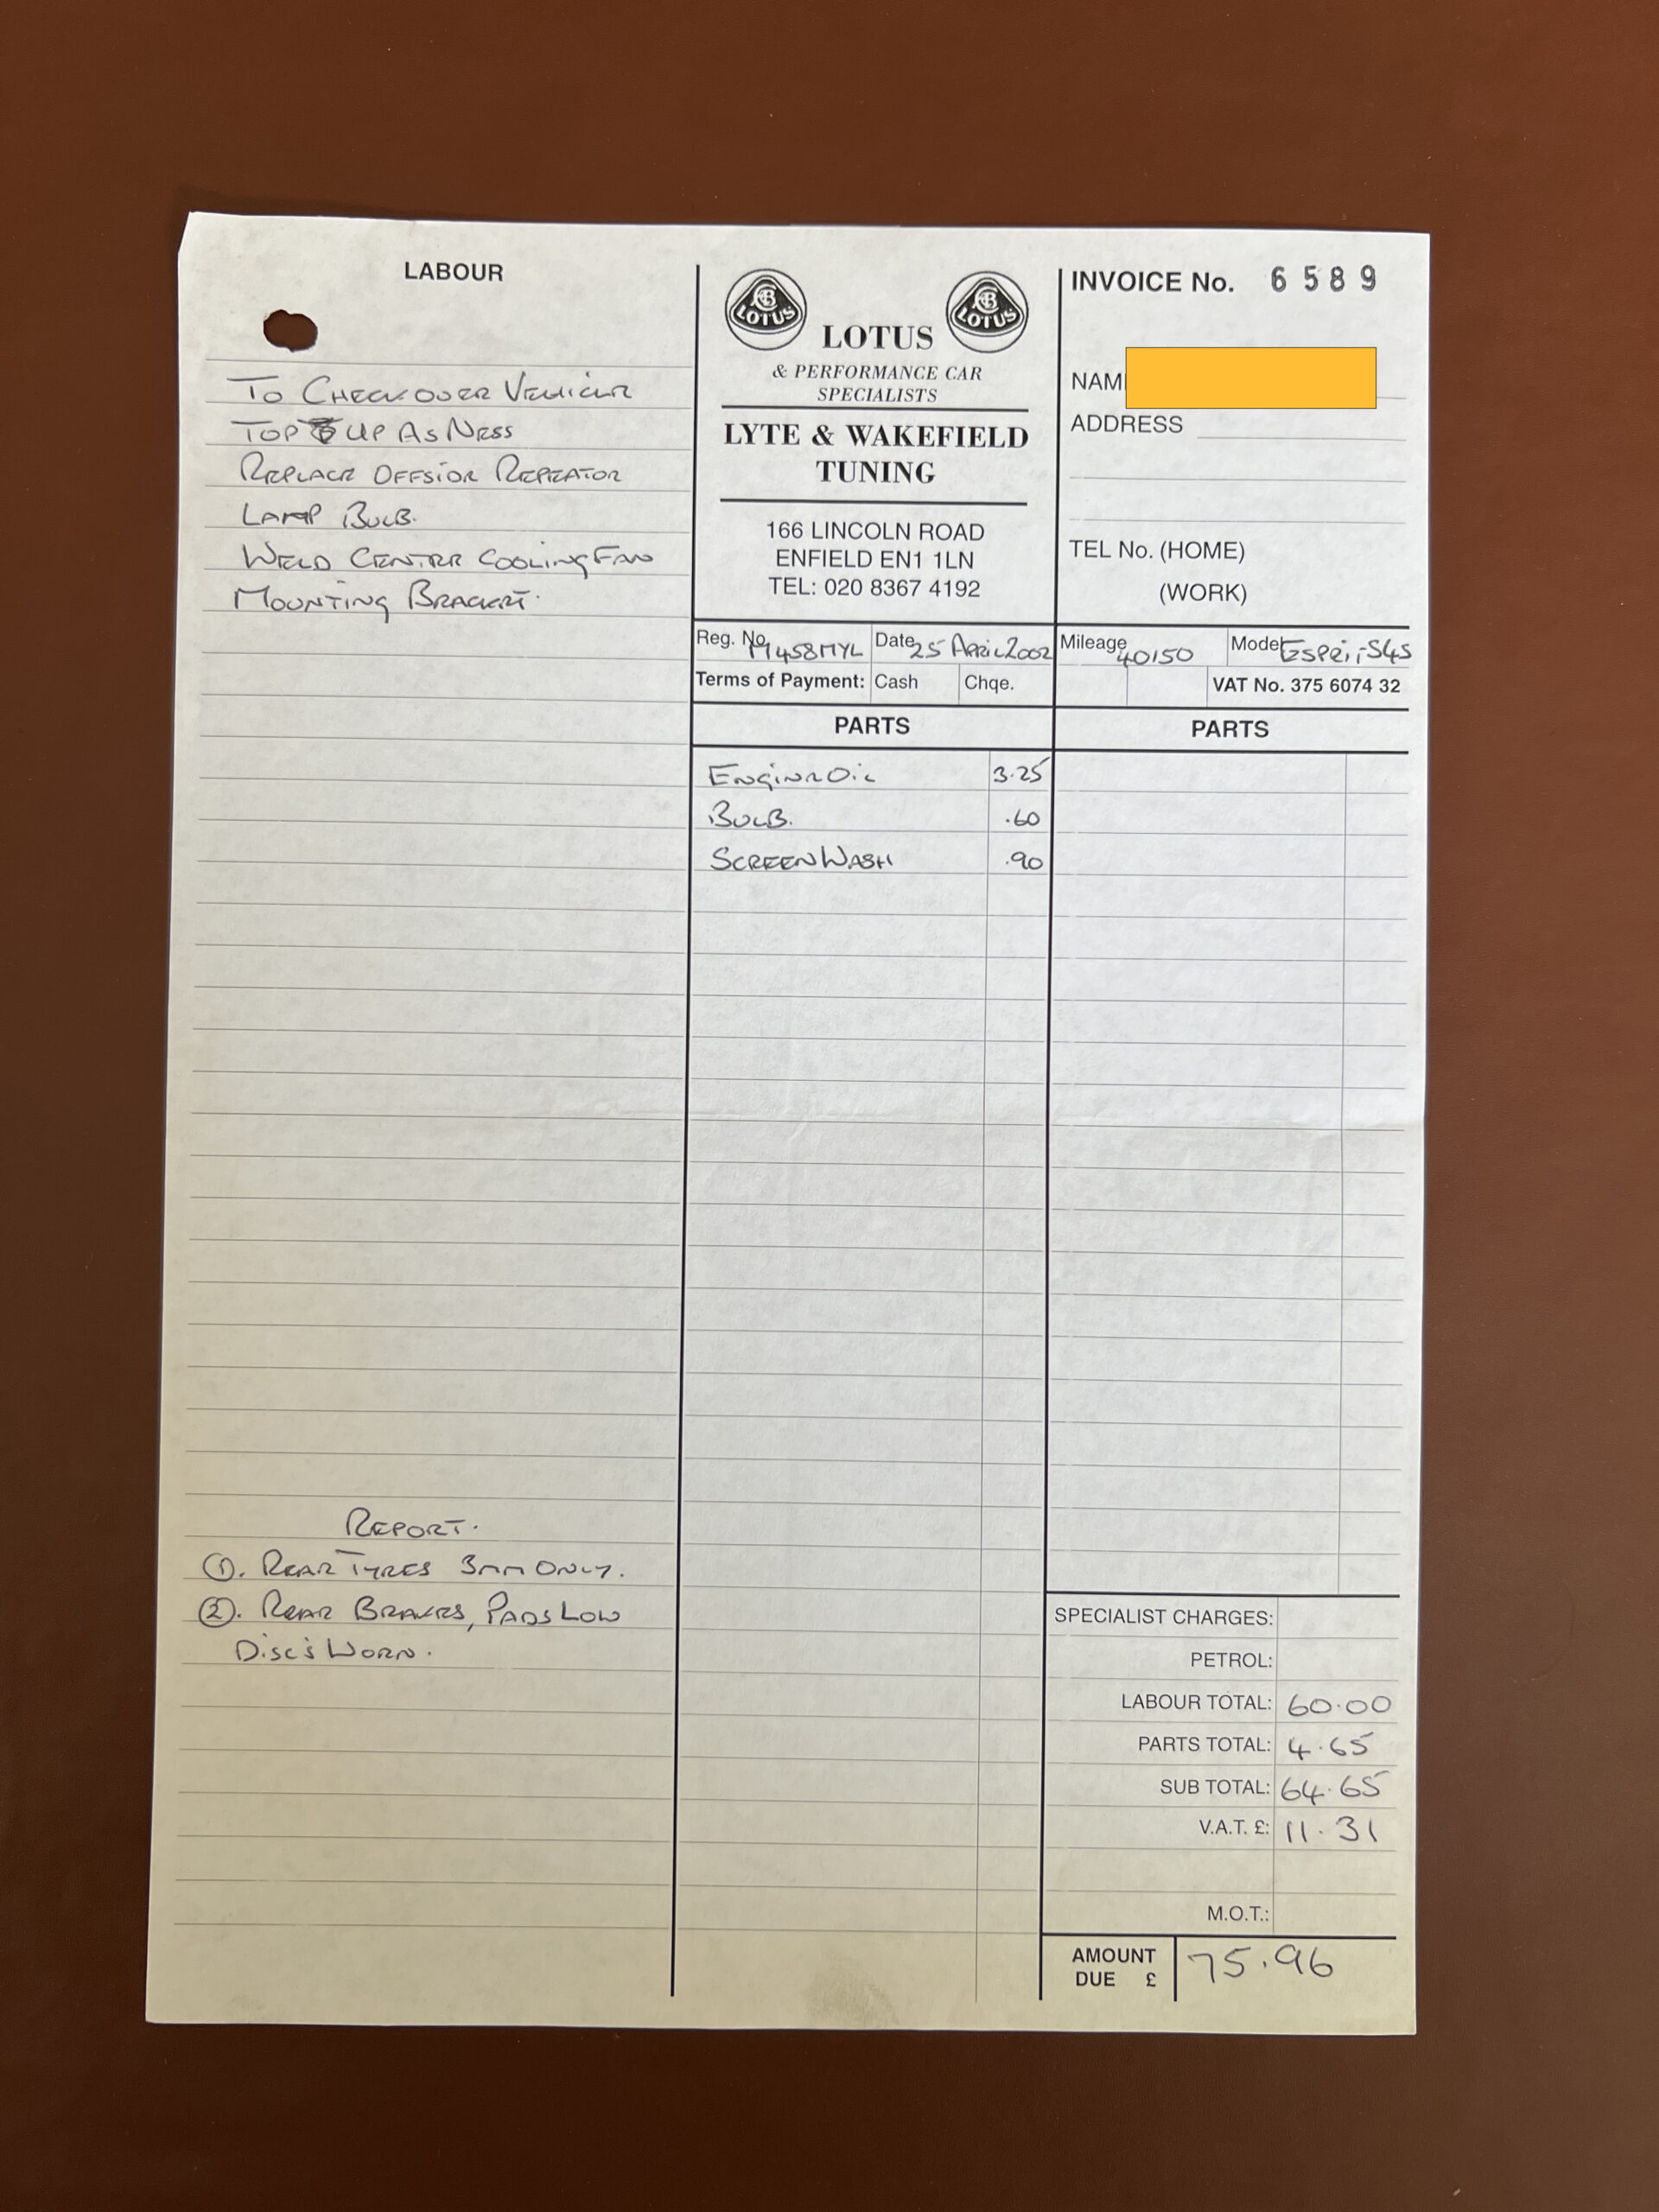 LABOUR
TO CHECKOVER VEHICLE
TOP UP AS NESS
REPLACE OFFSIDE REPEATOR
LAMP BULB.
WELD CENTRE COOLING FAN
MOUNTING BRACKET.
REPORT.
①. REAR TYRES 3MM ONLY.
②. REAR BRAKES, PADS LOW
DISC'S WORN.
LOTUS
LOTUS
LOTUS
& PERFORMANCE CAR
SPECIALISTS
LYTE & WAKEFIELD
TUNING
166 LINCOLN ROAD
ENFIELD EN1 1LN
TEL: 020 8367 4192
INVOICE No. 6589
NAM
ADDRESS
TEL No. (HOME)
(WORK)
Reg. No. M458MYL Date 25 APRIL 2002 Mileage 40150 Model ESPRIT S4S
Terms of Payment: Cash Chqe. VAT No. 375 6074 32
PARTS PARTS
ENGINE OIL 3.25
BULB. .60
SCREEN WASH .90
SPECIALIST CHARGES:
PETROL:
LABOUR TOTAL: 60.00
PARTS TOTAL: 4.65
SUB TOTAL: 64.65
V.A.T. £: 11.31
M.O.T.:
AMOUNT
DUE £ 75.96